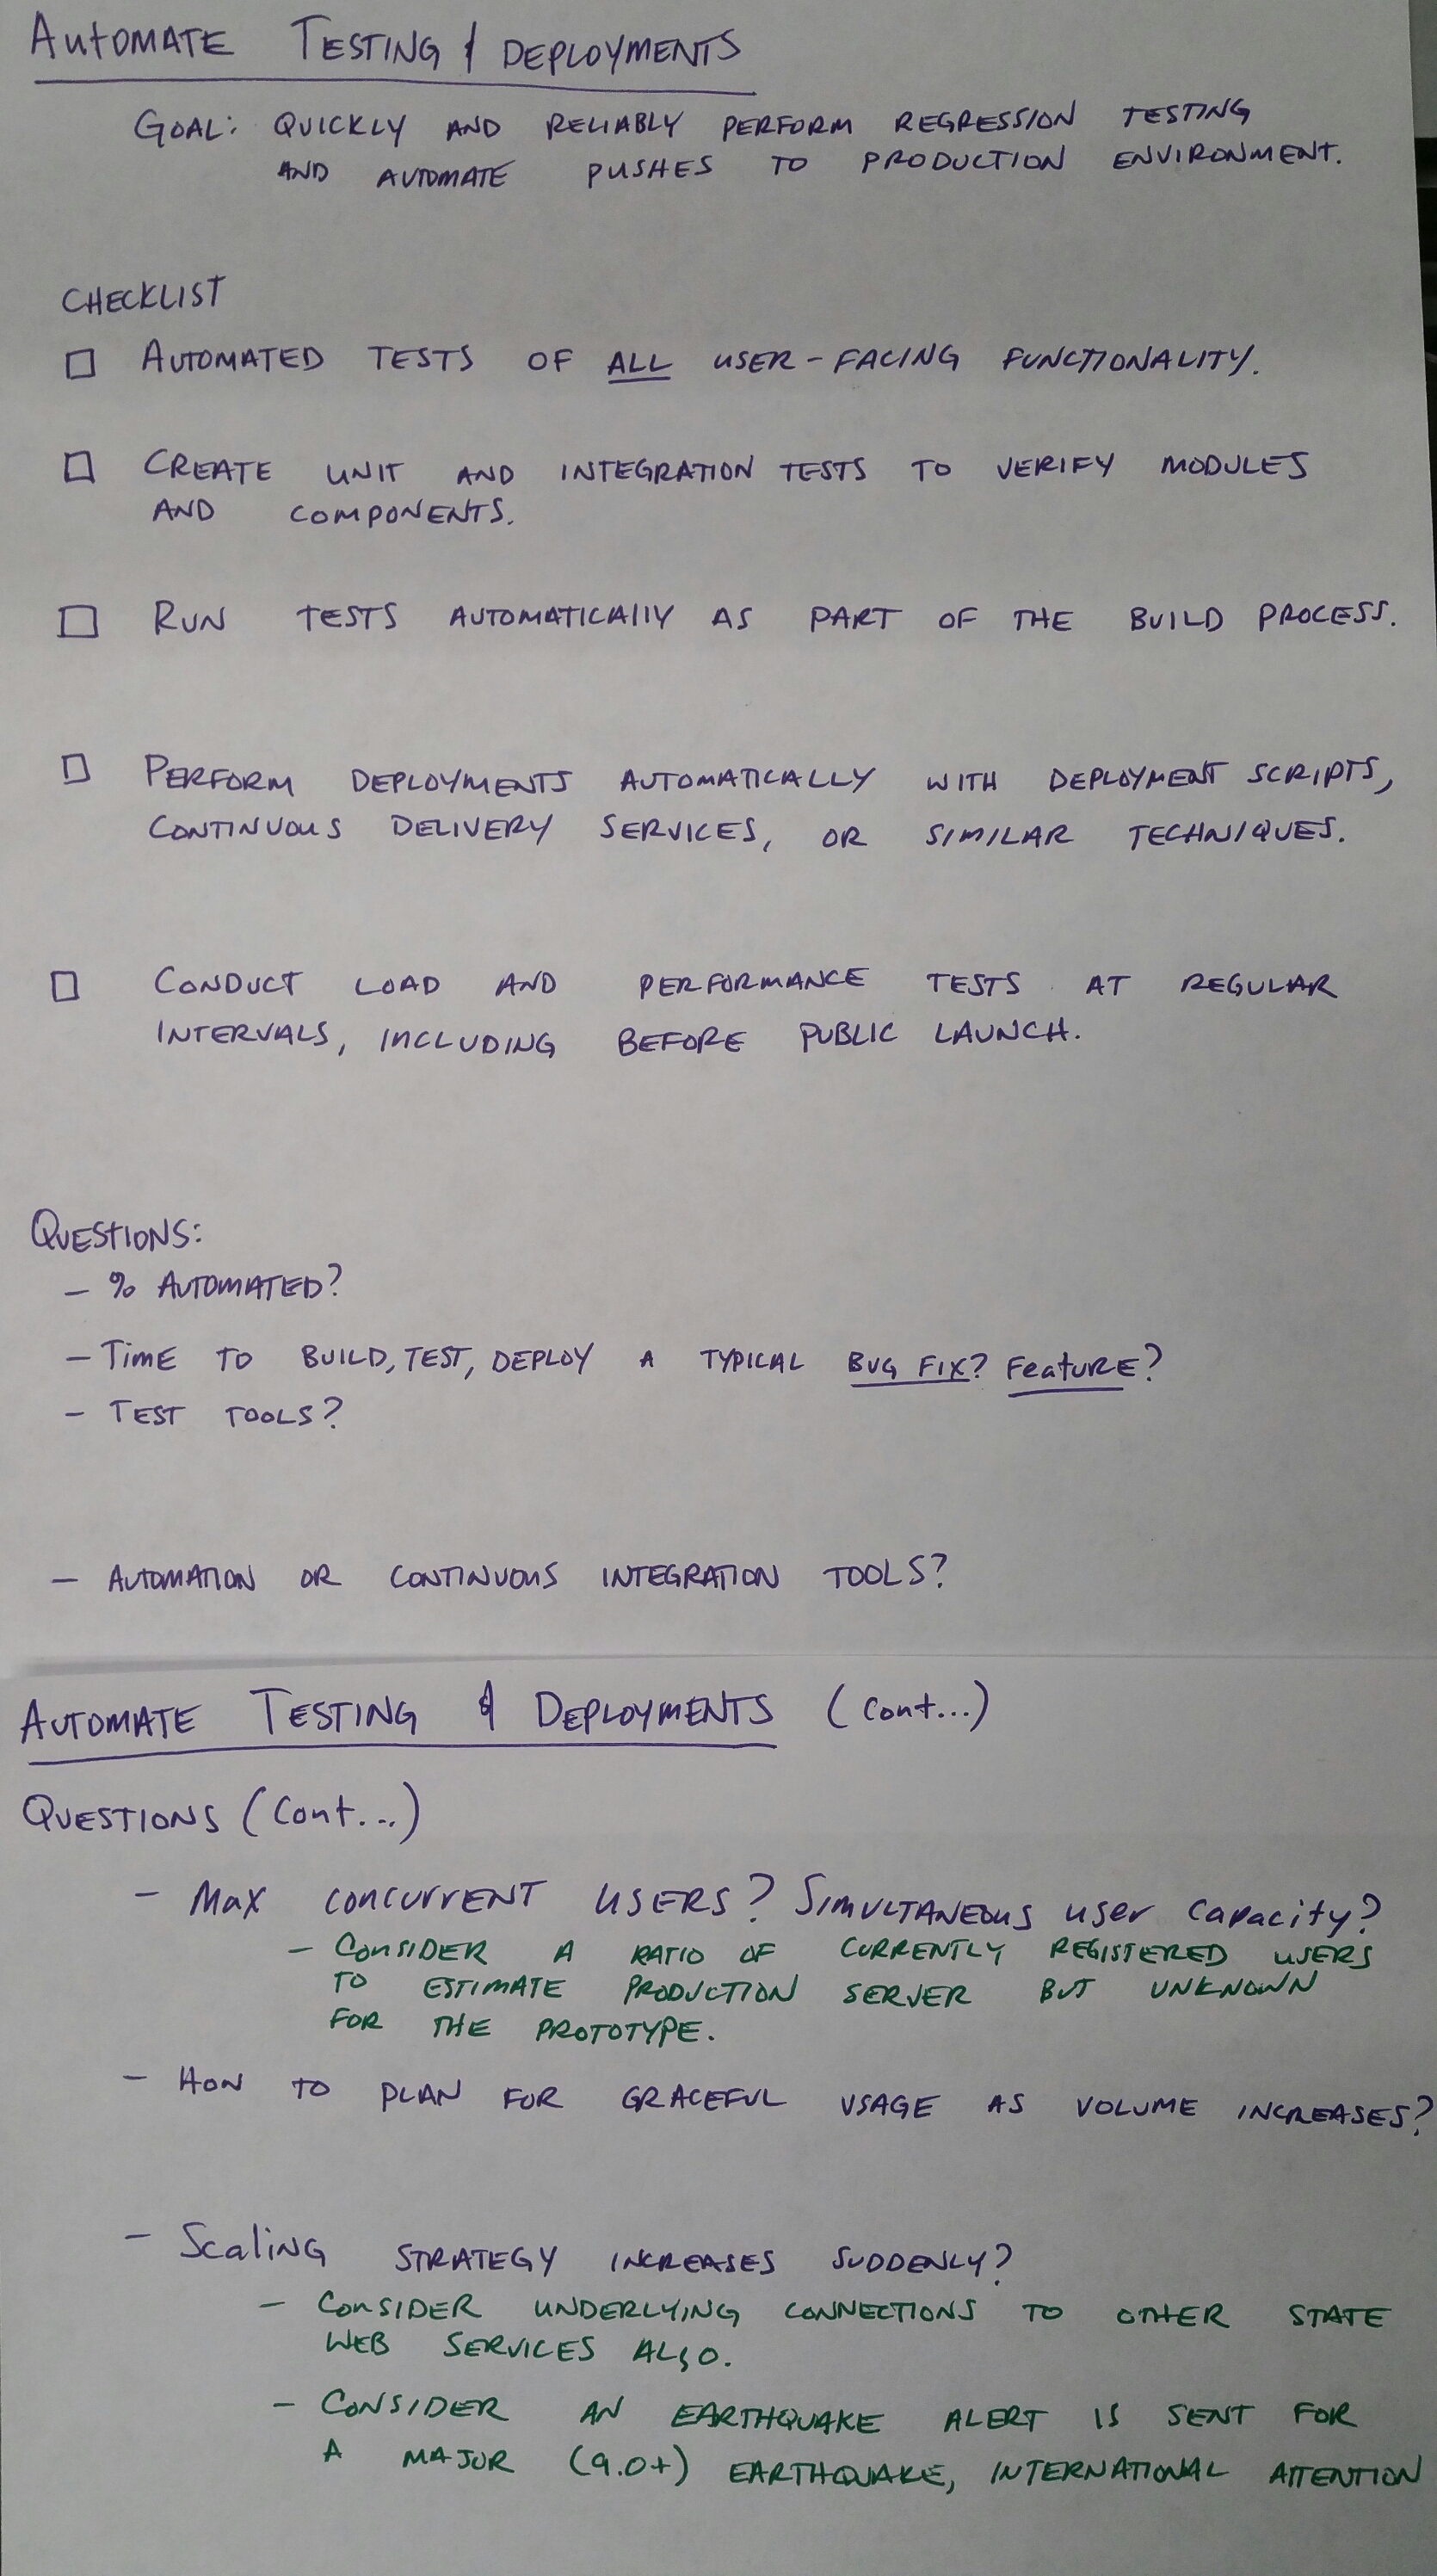 AUTOMATE TESTING & DEPLOYMENTS
GOAL: QUICKLY AND RELIABLY PERFORM REGRESSION TESTING
AND AUTOMATE PUSHES TO PRODUCTION ENVIRONMENT.
CHECKLIST
□ AUTOMATED TESTS OF ALL USER-FACING FUNCTIONALITY.
□ CREATE UNIT AND INTEGRATION TESTS TO VERIFY MODULES
AND COMPONENTS.
□ RUN TESTS AUTOMATICALLY AS PART OF THE BUILD PROCESS.
□ PERFORM DEPLOYMENTS AUTOMATICALLY WITH DEPLOYMENT SCRIPTS,
CONTINUOUS DELIVERY SERVICES, OR SIMILAR TECHNIQUES.
□ CONDUCT LOAD AND PERFORMANCE TESTS AT REGULAR
INTERVALS, INCLUDING BEFORE PUBLIC LAUNCH.
QUESTIONS:
- % AUTOMATED?
- TIME TO BUILD, TEST, DEPLOY A TYPICAL BUG FIX? FEATURE?
- TEST TOOLS?
- AUTOMATION OR CONTINUOUS INTEGRATION TOOLS?
AUTOMATE TESTING & DEPLOYMENTS (CONT...)
QUESTIONS (CONT...)
- MAX CONCURRENT USERS? SIMULTANEOUS USER CAPACITY?
- CONSIDER A RATIO OF CURRENTLY REGISTERED USERS
TO ESTIMATE PRODUCTION SERVER BUT UNKNOWN
FOR THE PROTOTYPE.
- HOW TO PLAN FOR GRACEFUL USAGE AS VOLUME INCREASES?
- SCALING STRATEGY INCREASES SUDDENLY?
- CONSIDER UNDERLYING CONNECTIONS TO OTHER STATE
WEB SERVICES ALSO.
- CONSIDER AN EARTHQUAKE ALERT IS SENT FOR
A MAJOR (9.0+) EARTHQUAKE, INTERNATIONAL ATTENTION